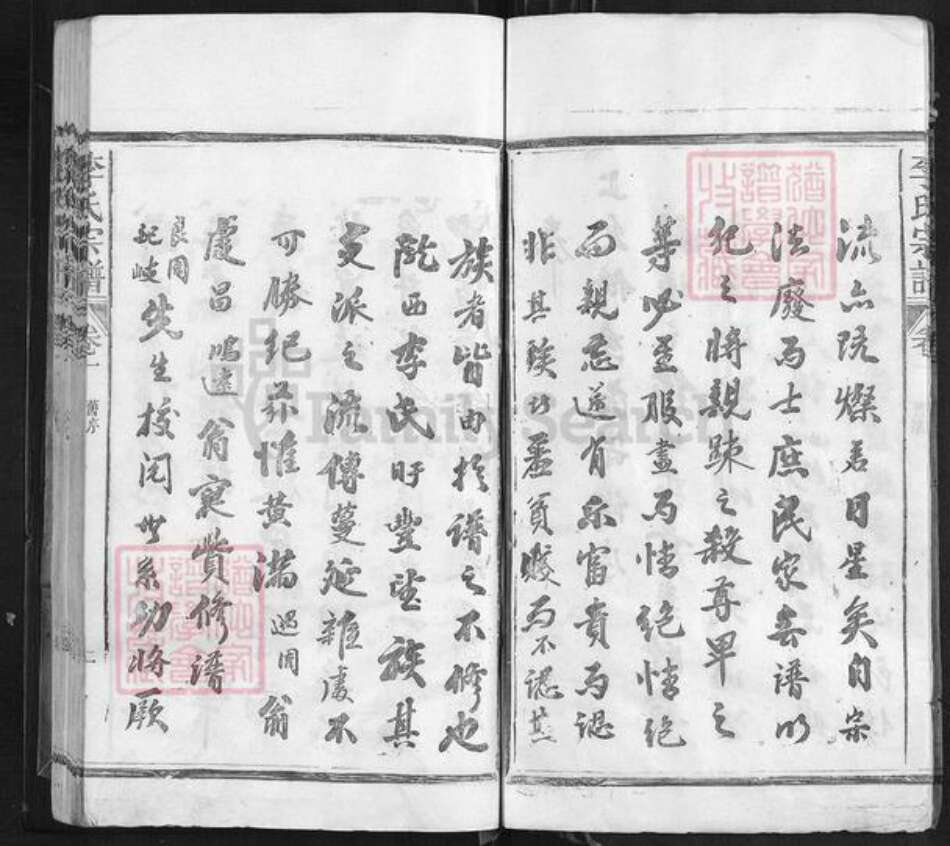 流亦既燦若日星矣自宗
法廢而士庶民家無譜以
紀之將親疎之殺尊卑之
等必至服盡而情絕情絕
而親忘道有求富貴而認
非其族以羞貧賤而不認其
族者皆由於譜之不修也
隴西李氏旴豐望族其
支派之流傳蔓延雖處不
可勝紀茲惟黃滿 遇周翁
處昌 鳴遠翁衷貲修譜
良周
配岐先生校閱世系功將厥
李氏宗譜 卷一 舊序
李氏宗譜
FamilySearch